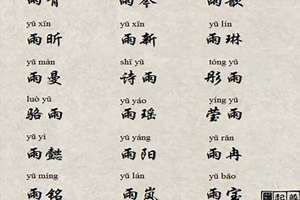 yǔ xīn yǔ xīn yǔ lín
雨昕 雨新 雨琳
yǔ màn shī yǔ tóng yǔ
雨曼 诗雨 彤雨
luò yǔ yǔ yáo yíng yǔ
骆雨 雨瑶 莹雨
yǔ yì yǔ yáng yǔ rǎn
雨懿 雨阳 雨冉
yǔ míng yǔ lán yǔ bǎo
雨铭 雨岚 雨宝